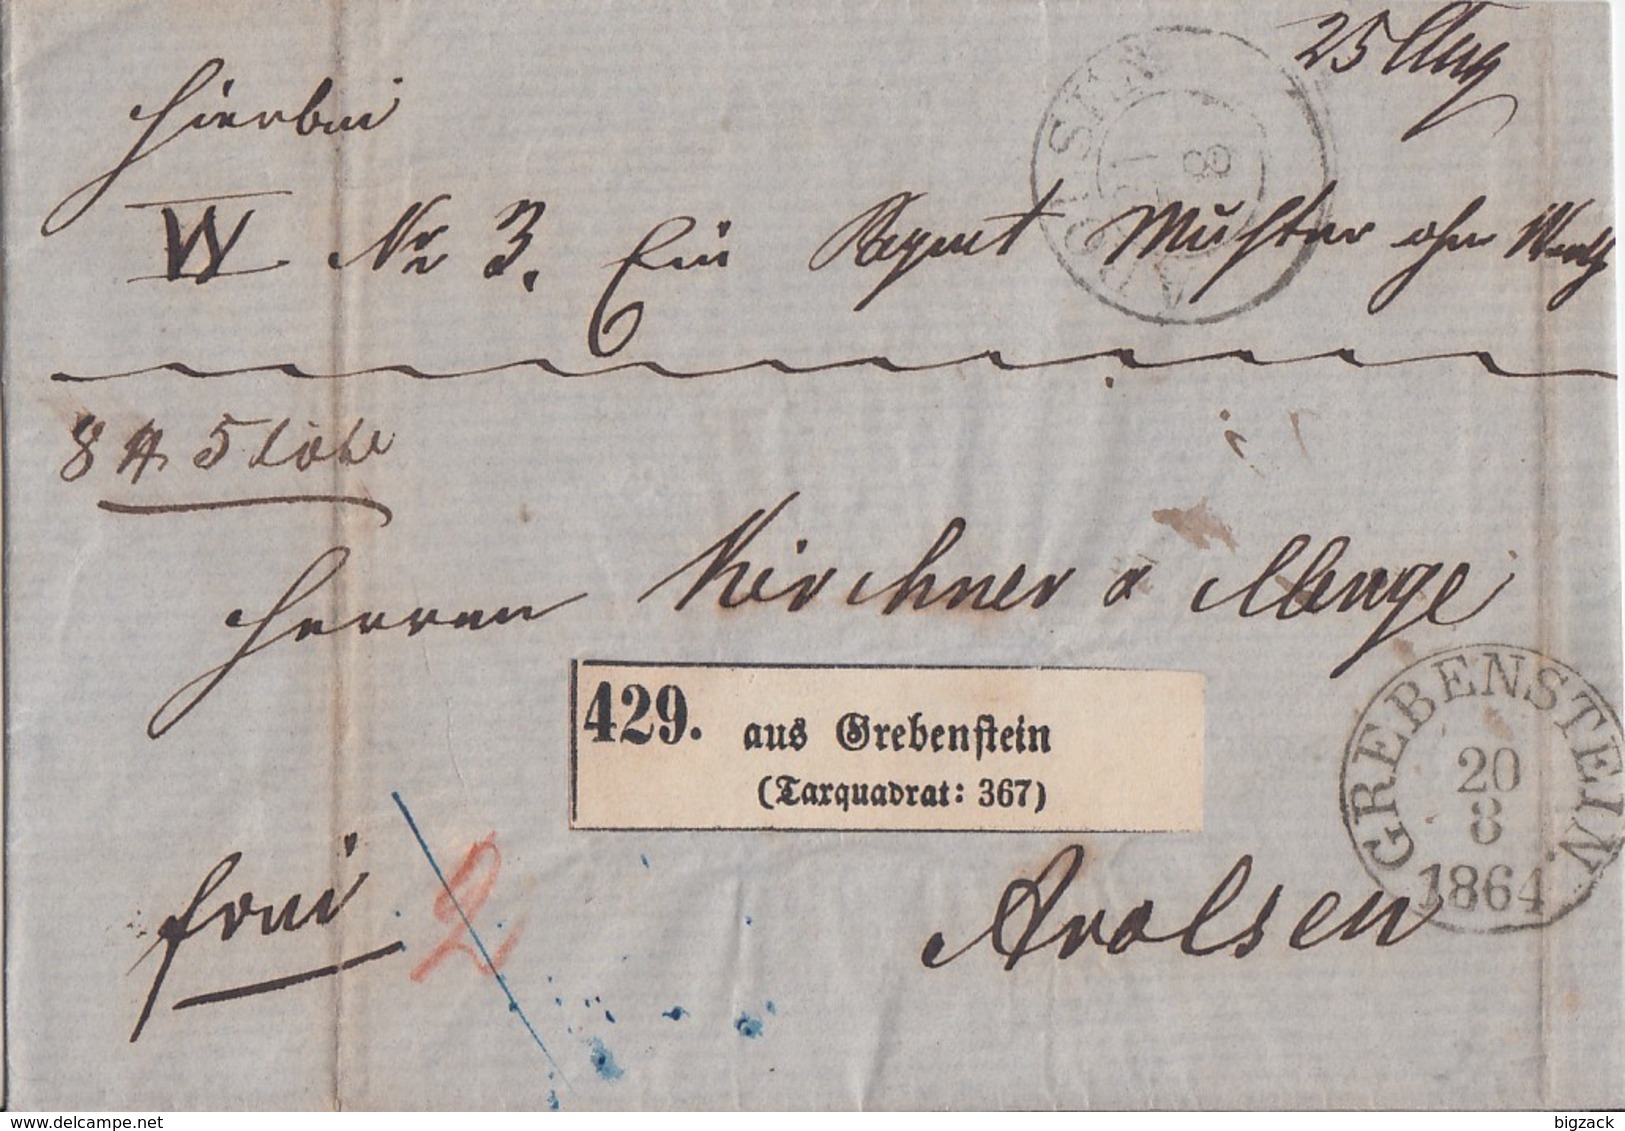 25 Aug
Hierbei
W No 3. Ein Paquet Muster ohne Werth
8 ℔ 5 Loth
Herren Kirchner & Menge
429. aus Grebenstein
(Taxquadrat: 367)
GREBENSTEIN
20
8
1864
frei
2
Arolsen
AROLSEN
8
bigzack